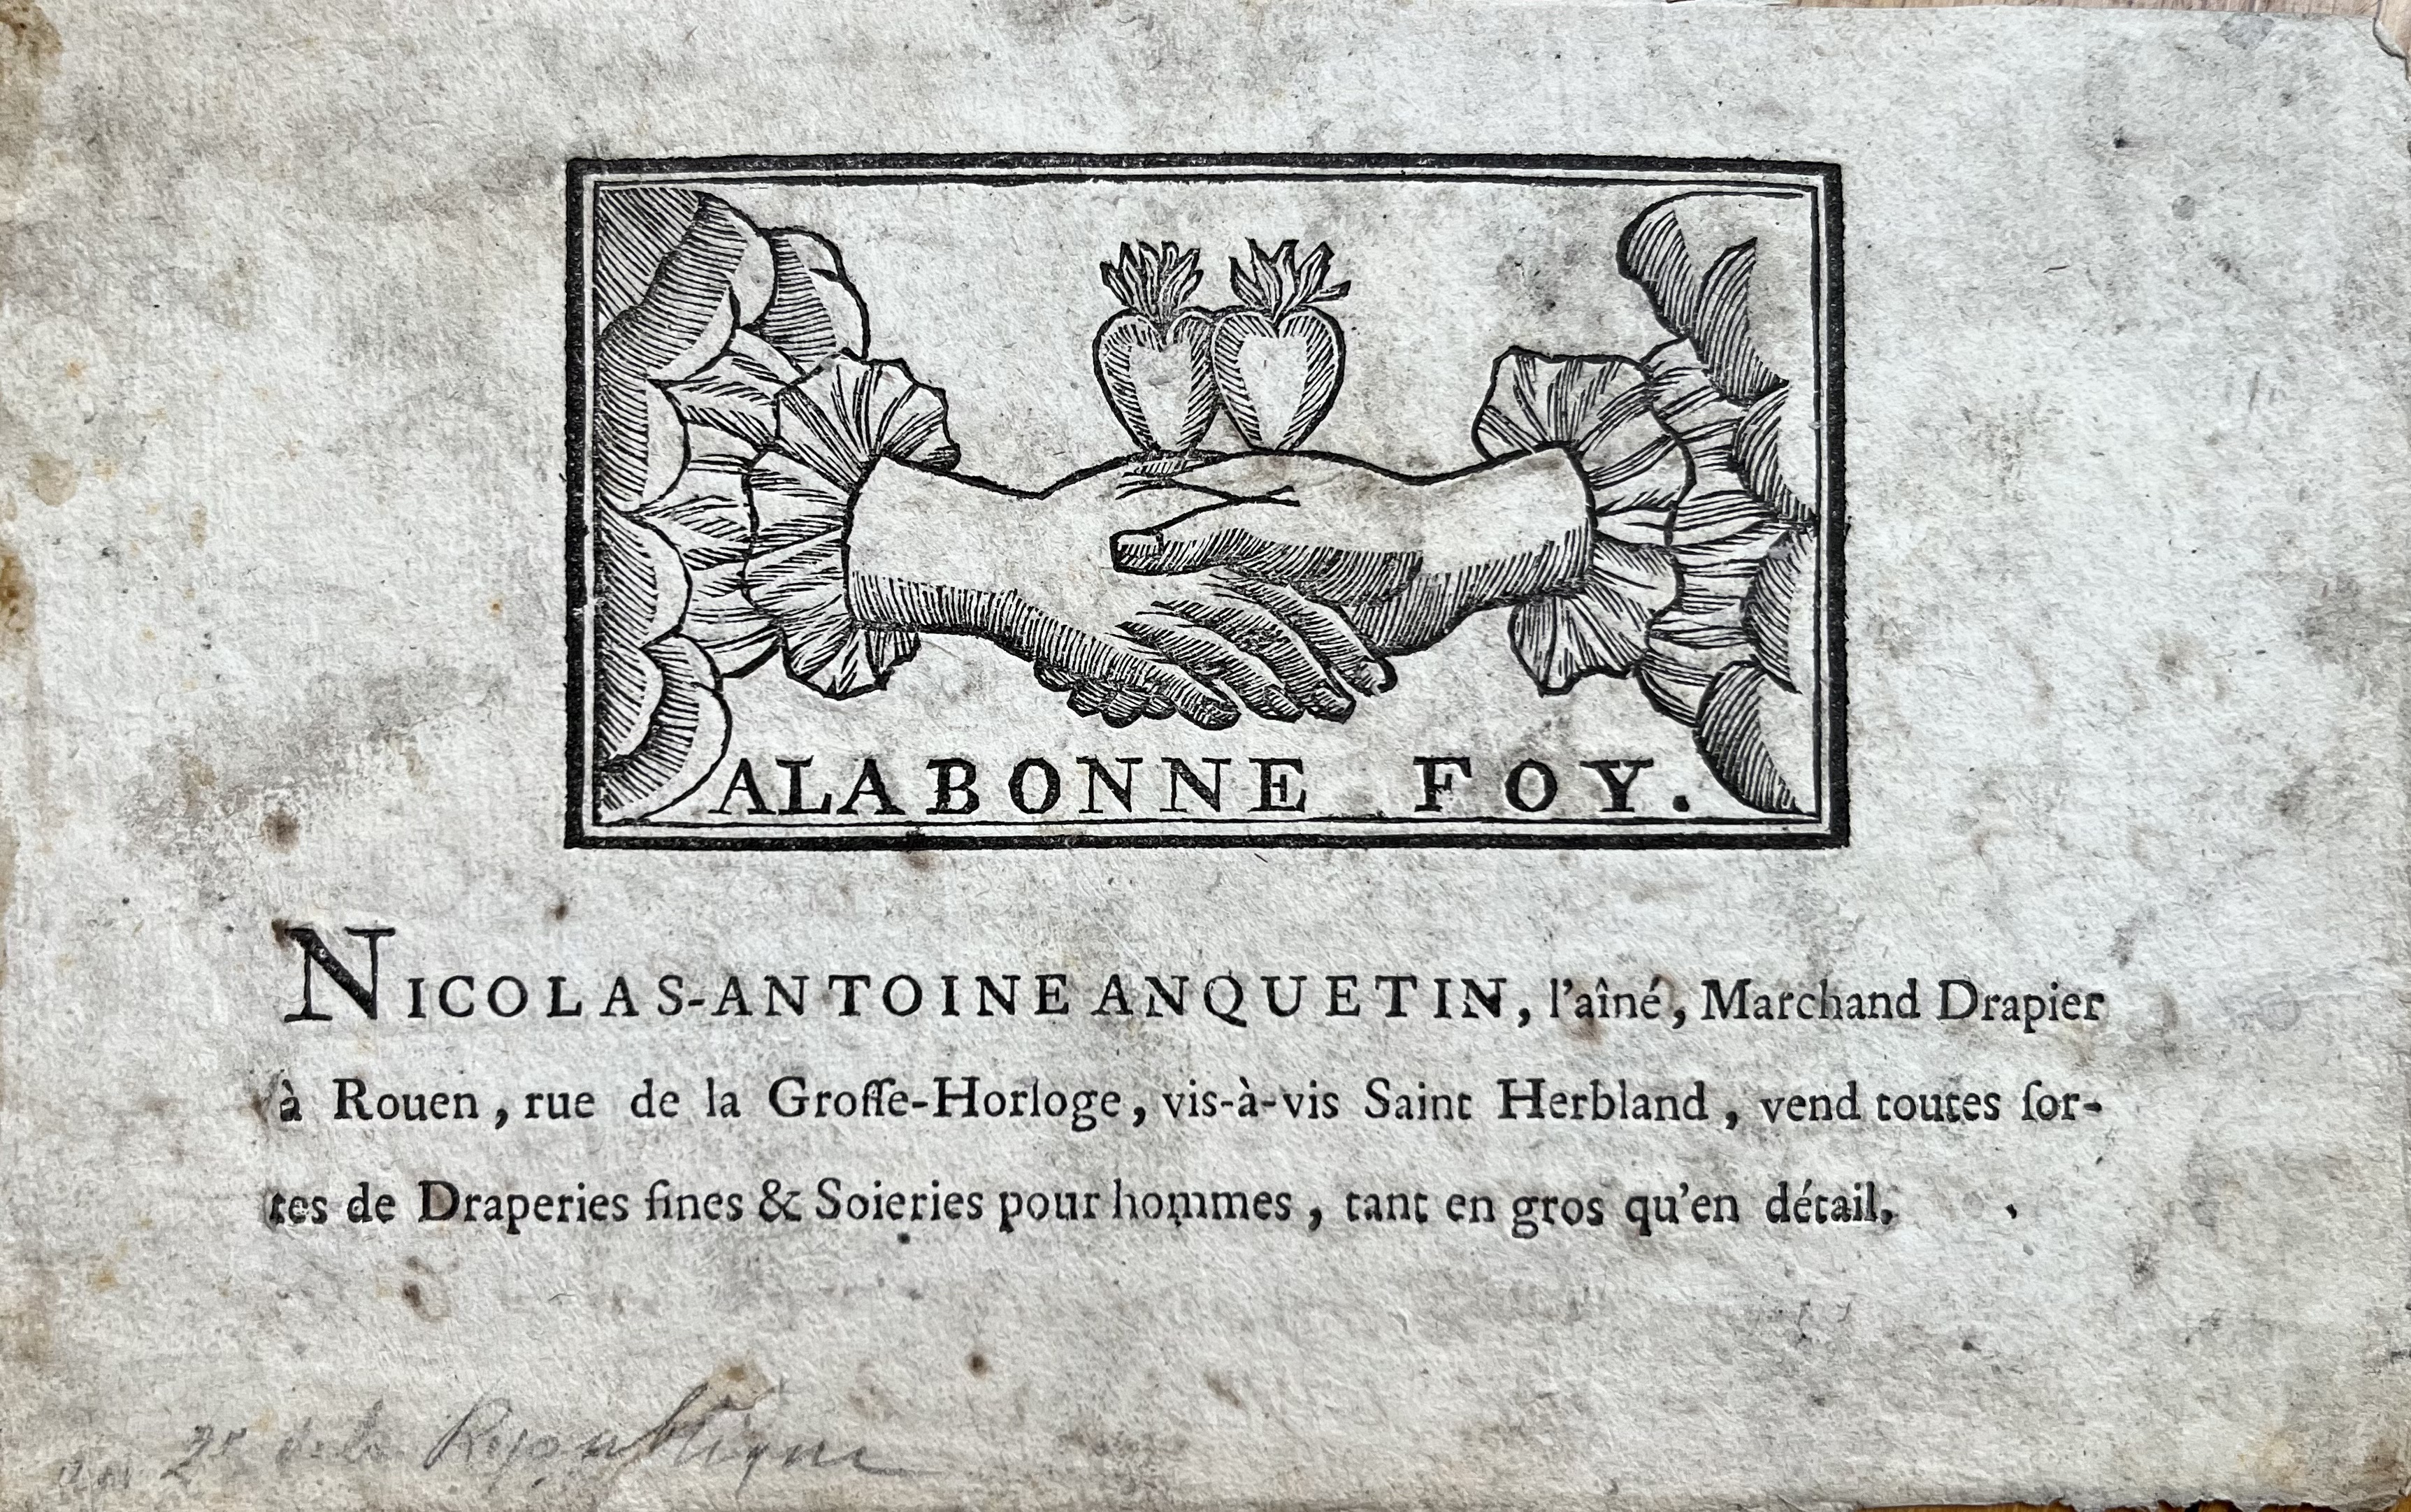 ALABONNE FOY.
NICOLAS-ANTOINE ANQUETIN, l'aîné, Marchand Drapier
à Rouen, rue de la Groſſe-Horloge, vis-à-vis Saint Herbland, vend toutes ſor-
tes de Draperies fines & Soieries pour hommes, tant en gros qu'en détail.
an 2e de la République